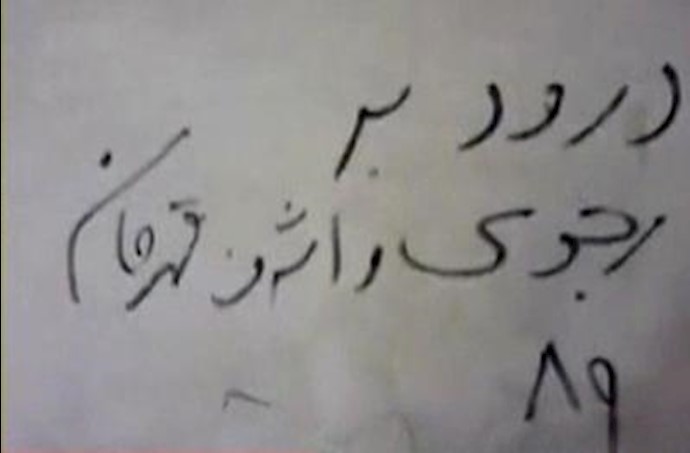 درود بر
رجوی و اشرف قهرمان
۸۹